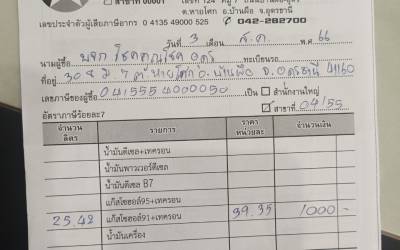 สาขาที่ 00001 เลขที่ 124 หมู่ 7
ต.หายโศก อ.บ้านผือ จ.อุดรธานี
เลขประจำตัวผู้เสียภาษีอากร 0 4135 49000 525 042-282700
วันที่ 3 เดือน ส.ค. พ.ศ. 66
นามผู้ซื้อ บจก. โชคคูณโชค อุดร ทะเบียนรถ
ที่อยู่ 308 ม.7 ต.หายโศก อ.บ้านผือ จ.อุดรธานี 41160
เลขภาษีของผู้ซื้อ 0415554000050 เป็น สำนักงานใหญ่
อัตราภาษีร้อยละ7 สาขาที่ 04155
จำนวนลิตร รายการ ราคาหน่วยละ จำนวนเงิน
น้ำมันดีเซล+เทครอน
น้ำมันพาวเวอร์ดีเซล
น้ำมันดีเซล B7
แก๊สโซฮอล์95+เทครอน
25.42 แก๊สโซฮอล์91+เทครอน 39.35 1000 -
น้ำมันเครื่อง